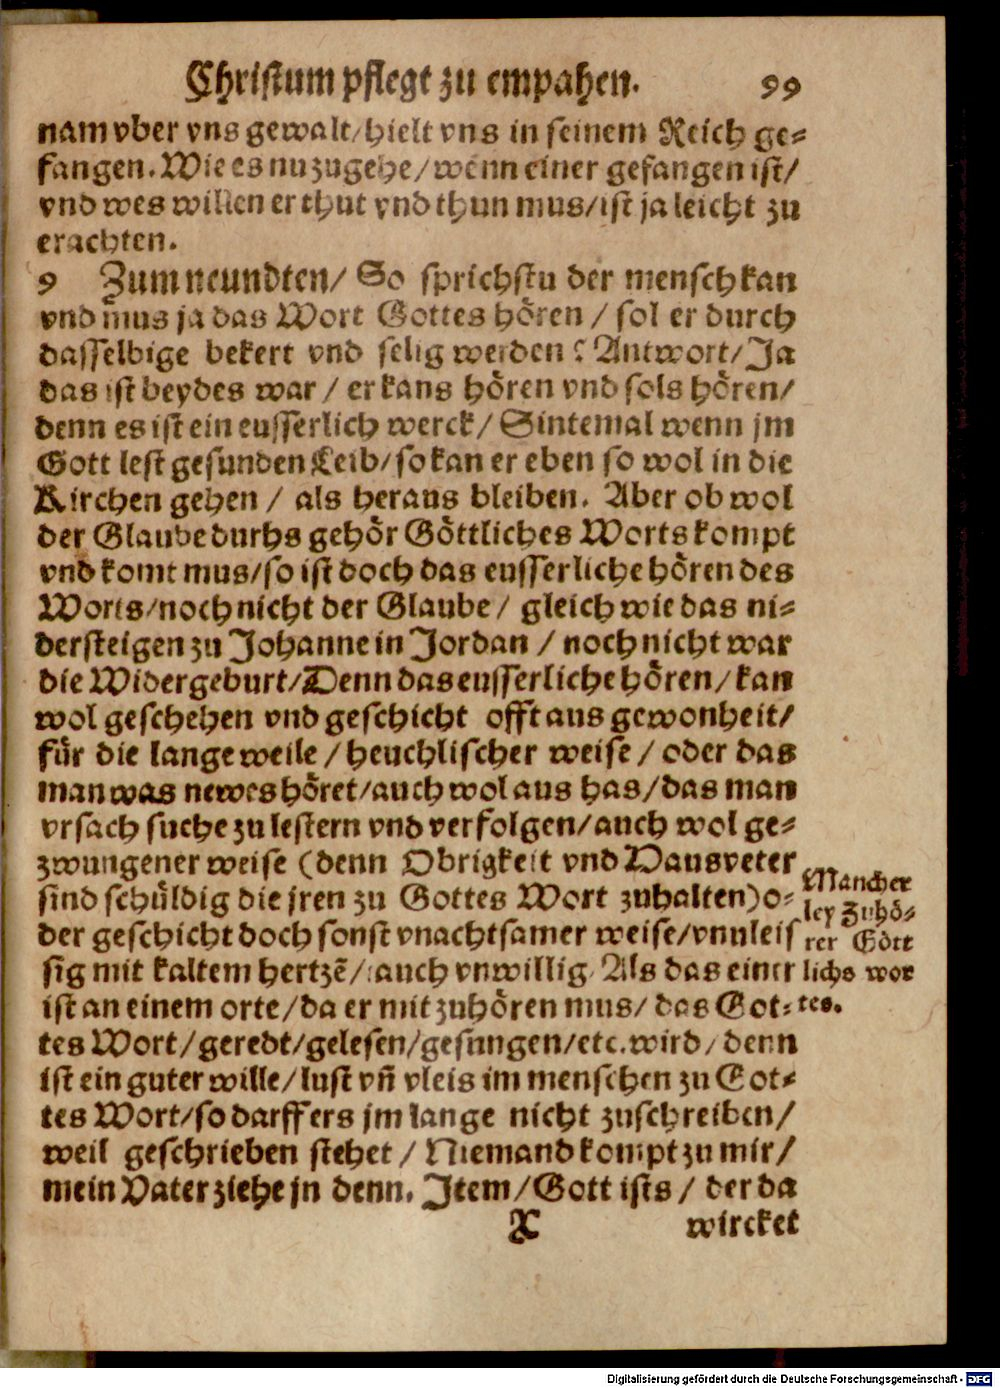 Christum pflegt zu empahen. 99
nam vber vns gewalt/hielt vns in seinem Reich ge-
fangen. Wie es nu zugehe/wenn einer gefangen ist/
vnd wes willen er thut vnd thun mus/ist ja leicht zu
erachten.
9 Zum neundten/ So sprichstu der mensch kan
vnd mus ja das Wort Gottes hören / sol er durch
dasselbige bekert vnd selig werden? Antwort/Ja
das ist beydes war / er kans hören vnd sols hören/
denn es ist ein eusserlich werck/ Sintemal wenn jm
Gott lest gesunden Leib/so kan er eben so wol in die
Kirchen gehen / als heraus bleiben. Aber ob wol
der Glaube durhs gehör Göttliches Worts kompt
vnd komt mus/so ist doch das eusserliche hören des
Worts/noch nicht der Glaube/ gleich wie das ni-
dersteigen zu Johanne in Jordan / noch nicht war
die Widergeburt/Denn das eusserliche hören/kan
wol geschehen vnd geschicht offt aus gewonheit/
für die lange weile / heuchlischer weise / oder das
man was newes höret/auch wol aus has/das man
vrsach suche zu lestern vnd verfolgen/auch wol ge-
zwungener weise (denn Obrigkeit vnd Hausveter
sind schüldig die jren zu Gottes Wort zuhalten)o-
der geschicht doch sonst vnachtsamer weise/vnuleis
sig mit kaltem hertzē/auch vnwillig/Als das einer
ist an einem orte/da er mit zuhören mus/das Got-
tes Wort/geredt/gelesen/gesungen/etc.wird/denn
ist ein guter wille/lust vn̄ vleis im menschen zu Got-
tes Wort/so darff ers jm lange nicht zuschreiben/
weil geschrieben stehet / Niemand kompt zu mir/
mein Vater ziehe jn denn. Jtem/Gott ists / der da
X wircket
Mancher
ley Zuhö-
rer Gött
lichs wor
tes.
Digitalisierung gefördert durch die Deutsche Forschungsgemeinschaft - DFG